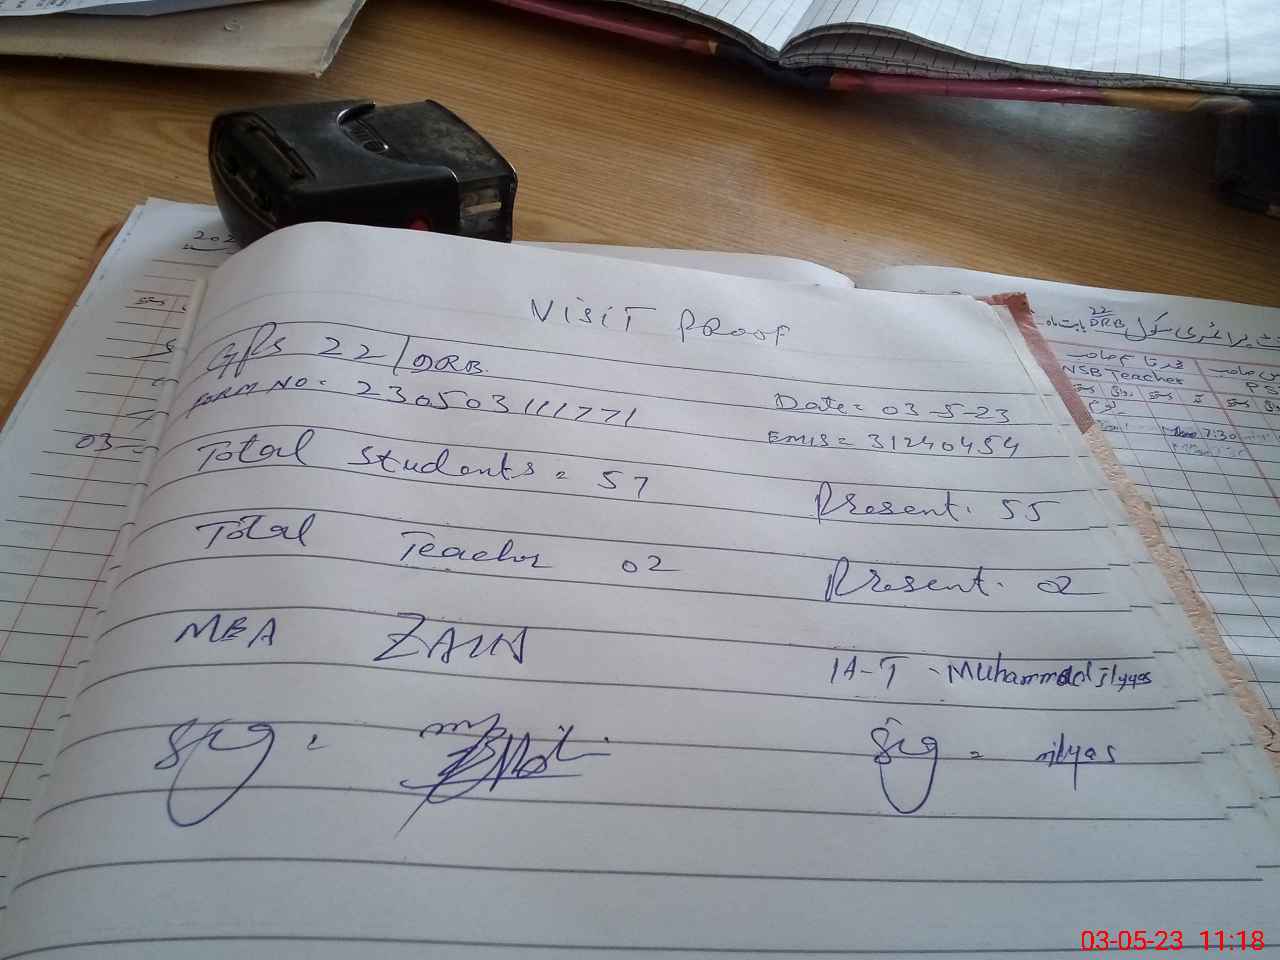 VisiT PROOF
GPS 22/DRB
FORM NO. 230503111771
Date = 03-5-23
EMIS = 31240454
Total Students = 57
Present. 55
Total Teacher 02
Present. 02
MEA ZAIN
H-T - Muhammad ilyas
Sig =
Sig = ilyas
03-
22
DRB
NSB Teacher
7:30
03-05-23 11:18